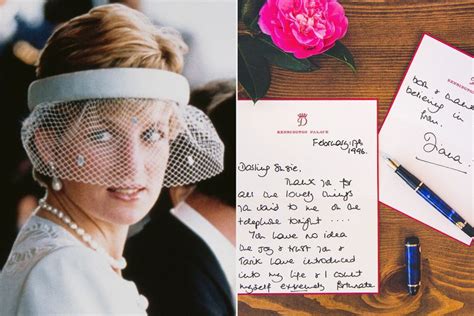 KENSINGTON PALACE
February 17th
1996.
Darling Susie,
Thank you for
all the lovely things
you said to me on the
telephone tonight ....
You have no idea
the joy & trust you &
Tarik have introduced
into my life & I count
myself extremely fortunate
KENSINGTON PALACE
both &
believing in
me.
Diana.